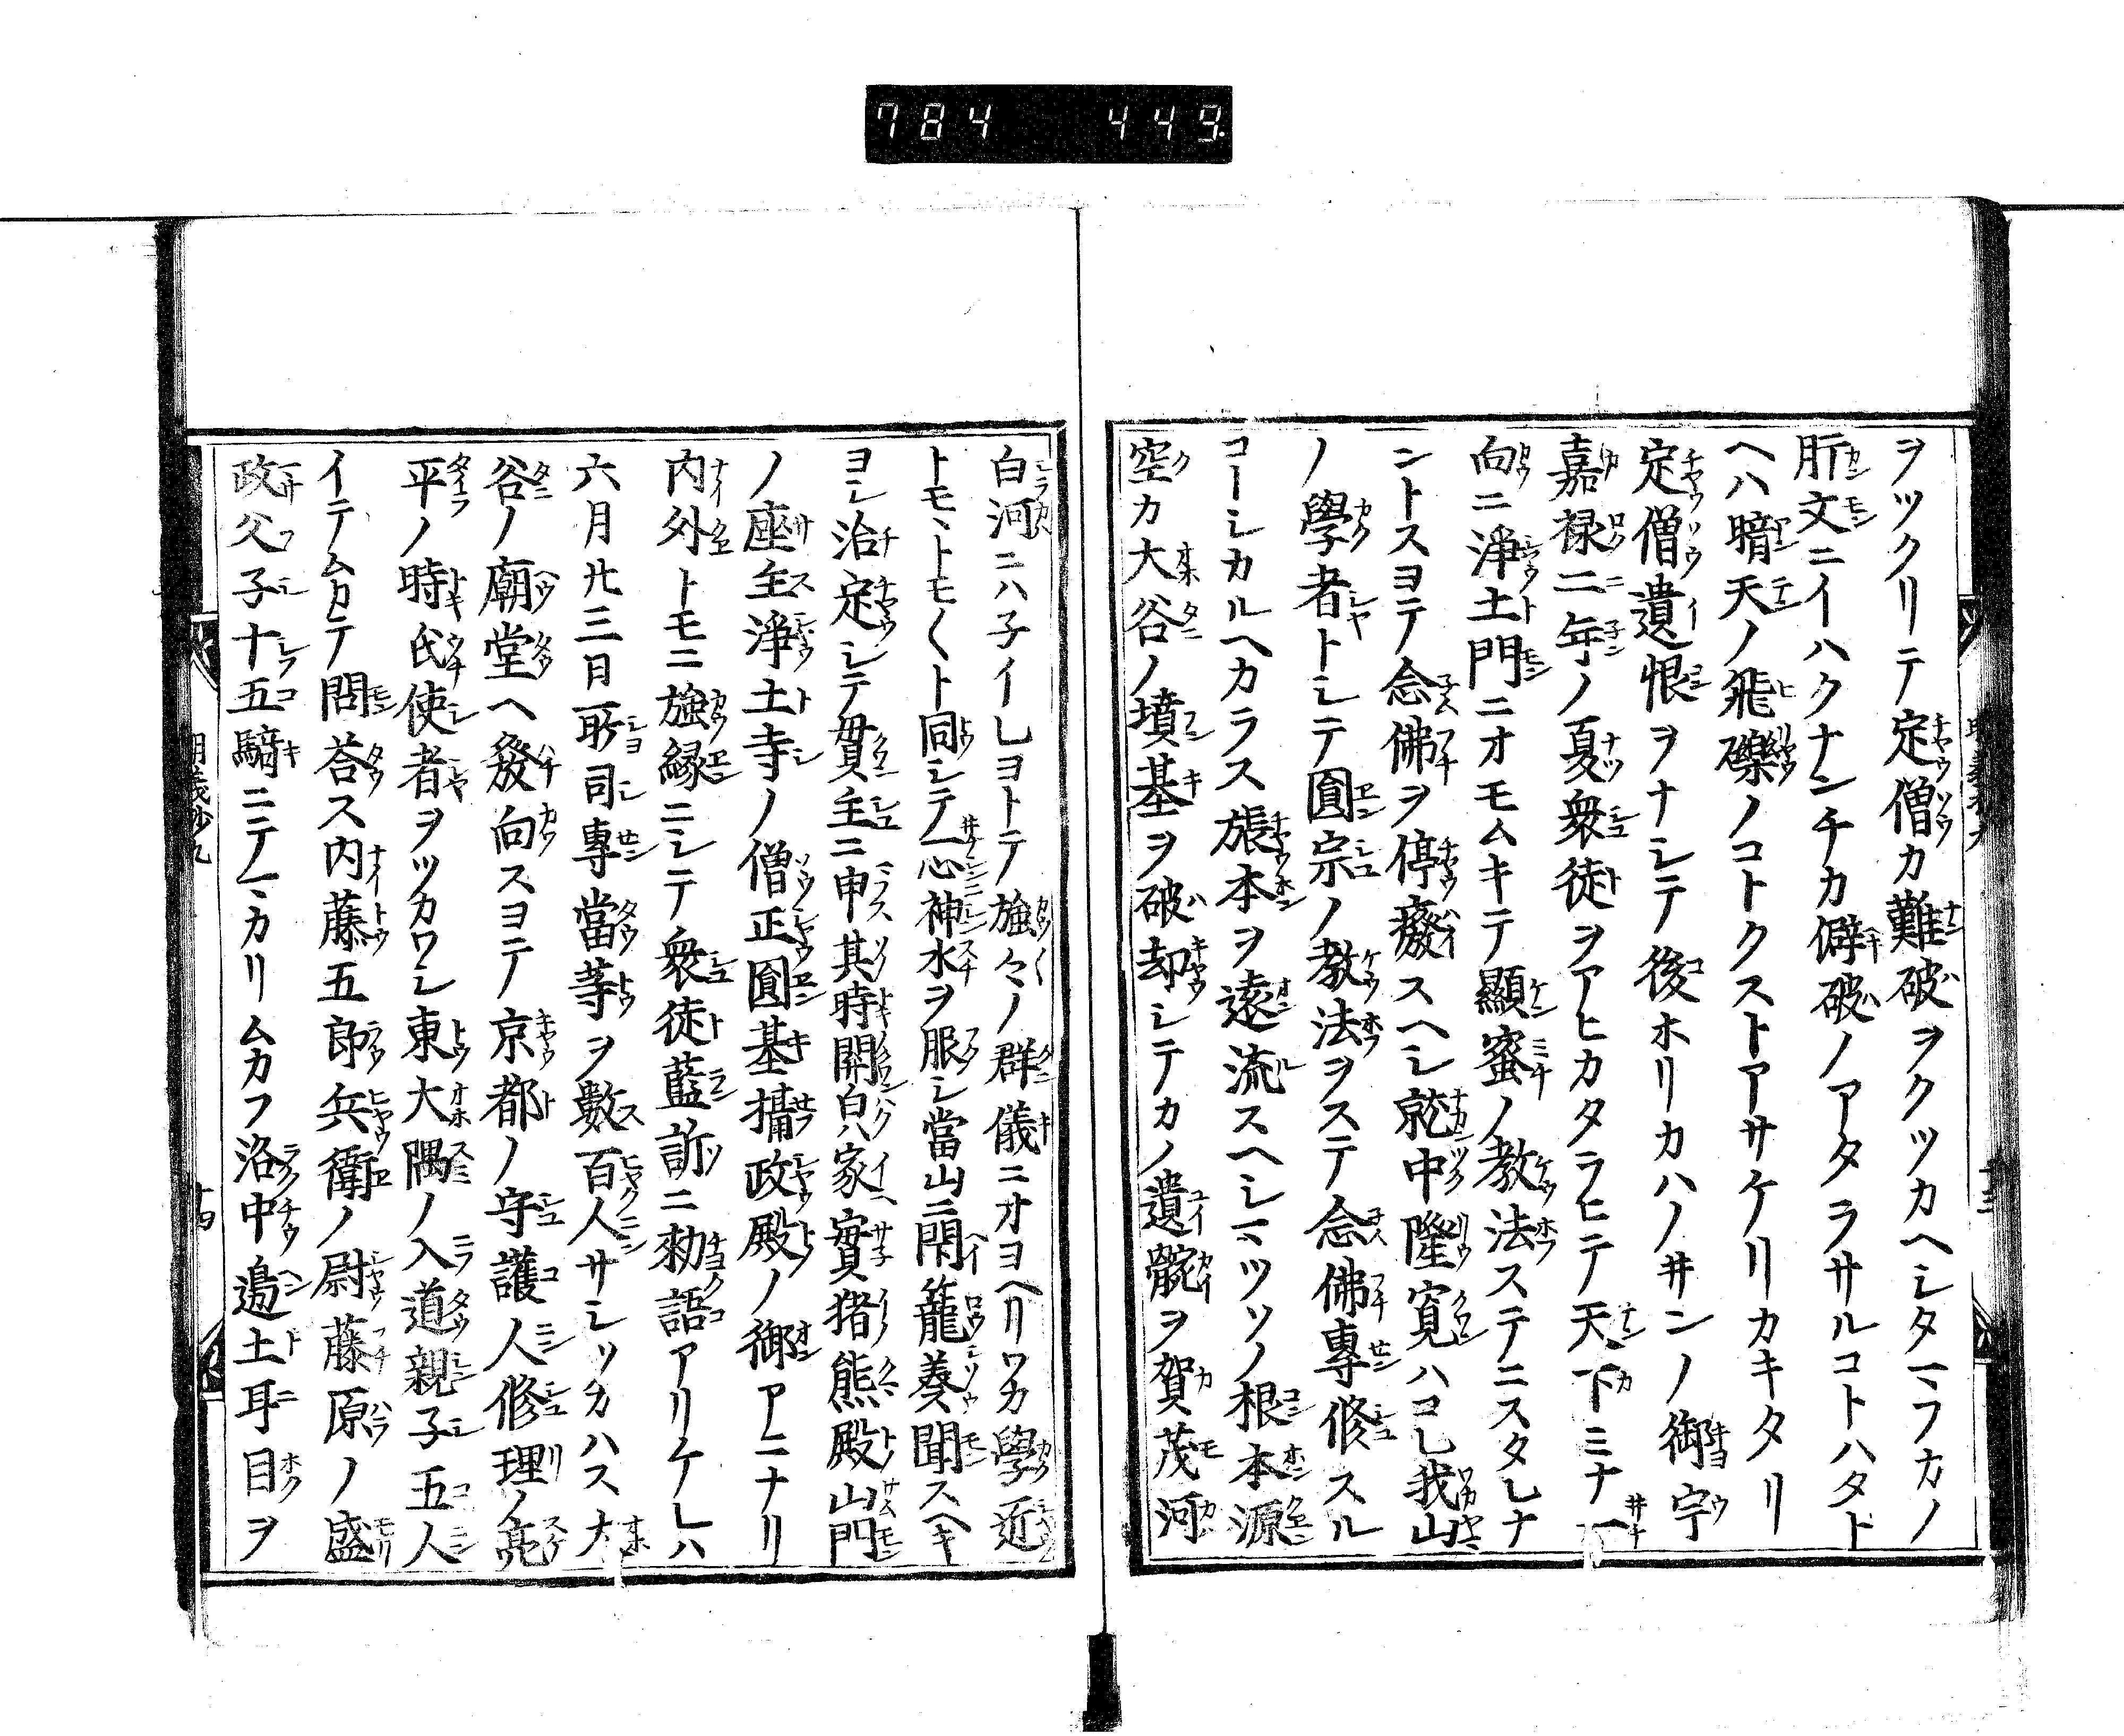 784 449
ヲツクリテ定僧カ難破ヲクツカヘシタマフカノ
肝文ニイハクナンチカ僻破ノアタラサルコトハタト
ヘハ暗天ノ飛礫ノコトクストアサケリカキタリ
定僧遺恨ヲナシテ後ホリカハノ井ンノ御宇
嘉禄二年ノ夏衆徒ヲアヒカタラヒテ天下ミナ一
向ニ淨土門ニオモムキテ顯蜜ノ教法ステニスタレナ
ントスヨテ念佛ヲ停癈スヘシ就中隆寛ハコレ我山
ノ學者トシテ圓宗ノ教法ヲステ念佛專修スル
コーシカルヘカラス張本ヲ遠流スヘシマツソノ根本源
空カ大谷ノ墳基ヲ破却シテカノ遺骸ヲ賀茂河
白河ニハ子イレヨトテ旋々ノ群儀ニオヨヘリワカ學近
トモヽトモ〱ト同シテ一心神水ヲ服シ當山ニ閇籠奏聞スヘキ
ヨシ治定シテ貫主ニ申其時關白ハ家實猪熊殿山門
ノ座主淨土寺ノ僧正圓基攝政殿ノ御アニナリ
内外トモニ強縁ニシテ衆徒藍訴ニ勅語アリケレハ
六月廿三日所司專當等ヲ數百人サシツカハス大
谷ノ廟堂ヘ發向スヨテ京都ノ守護人修理ノ亮
平ノ時氏使者ヲツカワシ東大隅ノ入道親子五人
イテムカテ問荅ス内藤五郎兵衞ノ尉藤原ノ盛
政父子十五騎ニテハマカリムカフ洛中邉土耳目ヲ
明義抄九
十四